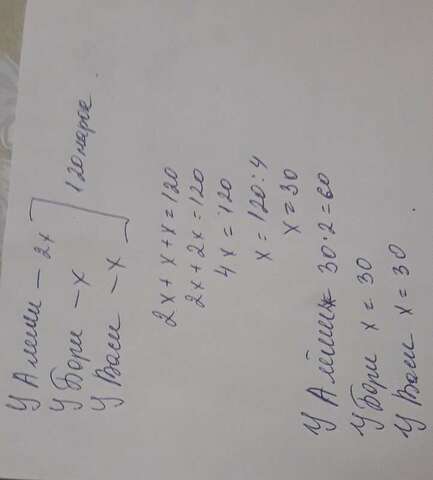 У Алеши - 2x
У Бори - x
У Васи - x
120 марок.
2x + x + x = 120
2x + 2x = 120
4x = 120
x = 120 : 4
x = 30
У Алёши 30 · 2 = 60
У Бори x = 30
У Васи x = 30.